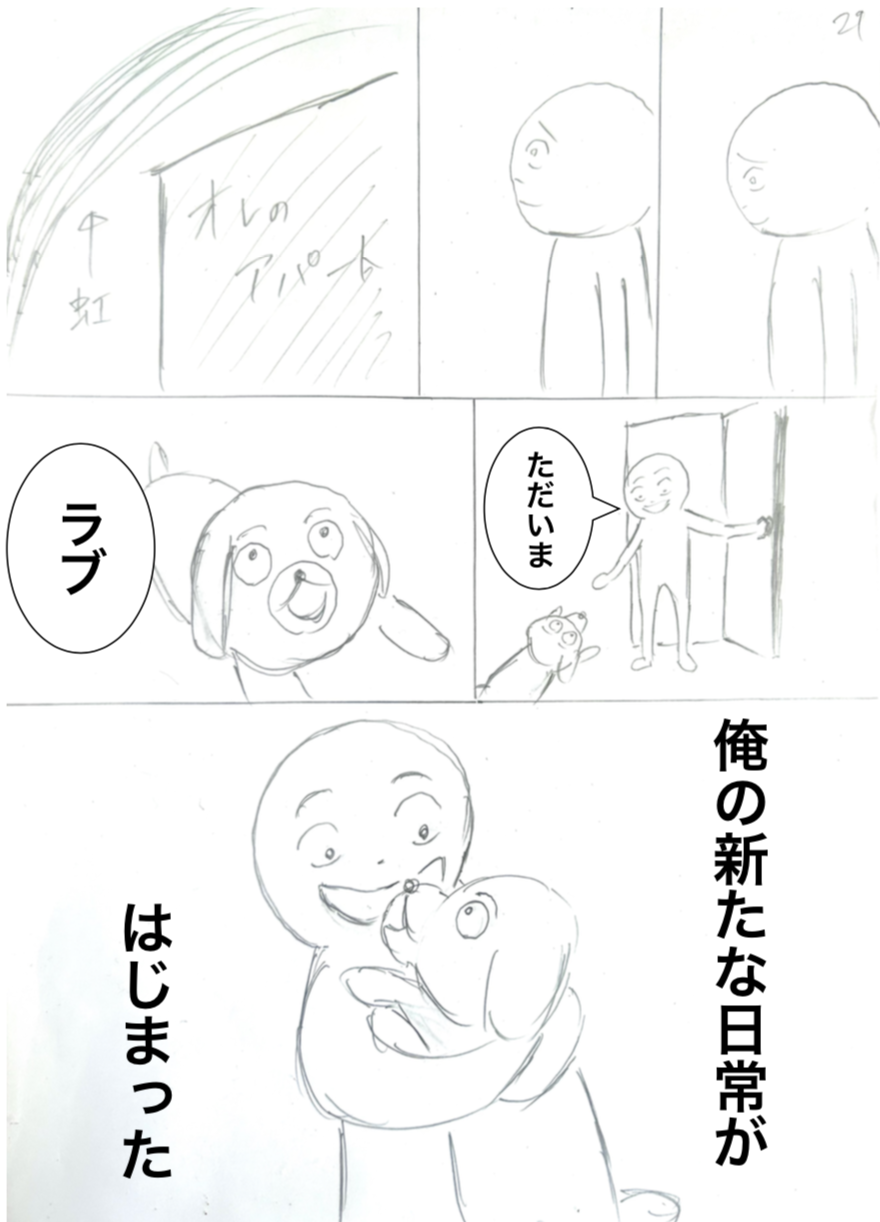 29
オレの
アパート
↑
虹
ただいま
ラブ
俺の新たな日常が
はじまった